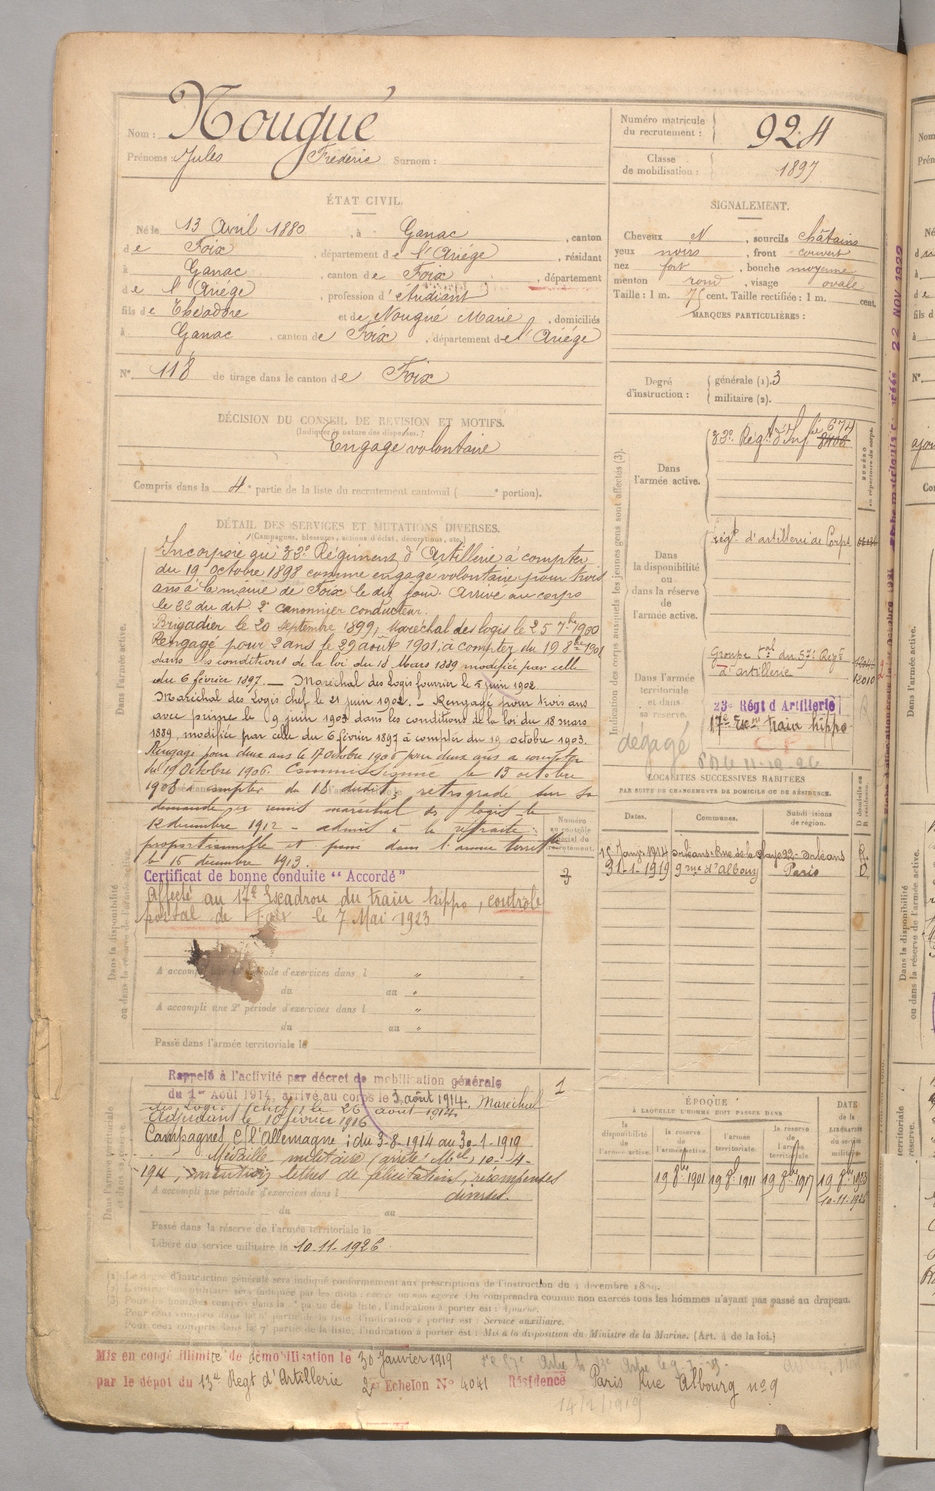 Nom : Nougué
Prénoms Jules Frédéric Surnom :
Numéro matricule du recrutement : 924
Classe de mobilisation : 1897
ÉTAT CIVIL.
Né le 13 Avril 1880, à Ganac, canton
de Foix, département de l'Ariège, résidant
à Ganac, canton de Foix, département
de l'Ariège, profession d'étudiant
fils de Théodore et de Nougué Marie, domiciliés
à Ganac, canton de Foix, département de l'Ariège
N° 118 de tirage dans le canton de Foix
SIGNALEMENT.
Cheveux N, sourcils châtains
yeux noirs, front couvert
nez fort, bouche moyenne
menton rond, visage ovale
Taille : 1 m. 75 cent. Taille rectifiée : 1 m. cent.
MARQUES PARTICULIÈRES :
Degré d'instruction : générale (1). 3
militaire (2).
DÉCISION DU CONSEIL DE REVISION ET MOTIFS.
(Indiquer la nature des dispenses.)
Engagé volontaire
Compris dans la 4e partie de la liste du recrutement cantonal ( e portion).
DÉTAIL DES SERVICES ET MUTATIONS DIVERSES.
(Campagnes, blessures, actions d'éclat, décorations, etc.)
Dans l'armée active.
Incorporé au 33e Régiment d'Artillerie à compter
du 19 Octobre 1898 comme engagé volontaire pour trois
ans à la mairie de Foix le dit jour. Arrivé au corps
le 22 du dit. 2e canonnier conducteur.
Brigadier le 20 septembre 1899, Maréchal des logis le 25 7bre 1900
Rengagé pour 2 ans le 29 août 1901, à compter du 19 8bre 1901
dans les conditions de la loi du 18 Mars 1889 modifiée par celle
du 6 février 1897. — Maréchal des Logis fourrier le 5 juin 1902
Maréchal des Logis chef le 21 juin 1902. — Rengagé pour trois ans
avec prime le 9 juin 1903 dans les conditions de la loi du 18 mars
1889, modifiée par celle du 6 février 1897 à compter du 19 octobre 1903.
Rengagé pour deux ans le 17 Octobre 1906 pour deux ans à compter
du 19 Octobre 1906. Commissionné le 13 octobre
1908 à compter du 18 dudit, rétrogradé sur sa
demande et remis maréchal des logis le
12 décembre 1912 — admis à la retraite
proportionnelle et passé dans l'armée territle
le 16 décembre 1913.
Certificat de bonne conduite "Accordé"
Affecté au 17e Escadron du train hippo, contrôle
postal de Foix le 7 Mai 1923
Dans la disponibilité ou dans la réserve de l'armée active.
A accompli une 1re période d'exercices dans l "
du au "
A accompli une 2e période d'exercices dans l "
du au "
Passé dans l'armée territoriale le
Numéro au contrôle spécial du recrutement.
Indication des corps auxquels les jeunes gens sont affectés (3).
Dans l'armée active.
33e Régt d'Inf
Dans la disponibilité ou dans la réserve de l'armée active.
Régt d'artillerie de Corps
Dans l'armée territoriale et dans sa réserve.
Groupe tal du
d'artillerie
23e Régt d'Artillerie
17e Esc train hippo
dégagé
LOCALITÉS SUCCESSIVES HABITÉES
PAR SUITE DE CHANGEMENTS DE DOMICILE OU DE RÉSIDENCE.
Dates. Communes. Subdivisions de région. D domicile ou R résidence.
15 Janvr 1914 Orléans Rue de la Orléans R.
31-1-1919 9 rue d'Albouy Paris D.
Dans l'armée territoriale et dans sa réserve.
Rappelé à l'activité par décret de mobilisation générale
du 1er Août 1914, arrivé au corps le 3 août 1914. Maréchal
des Logis chef le 26 août 1914.
Adjudant le 10 février 1916
Campagnes C/ l'Allemagne : du 3-8-1914 au 30-1-1919
Médaille militaire (arrêté Miel 10-4-
, lettres de félicitations, récompenses
diverses.
A accompli une période d'exercices dans l
du au
Passé dans la réserve de l'armée territoriale le
Libéré du service militaire le 10.11.1926
ÉPOQUE
A LAQUELLE L'HOMME DOIT PASSER DANS
la disponibilité de l'armée active. la réserve de l'armée active. l'armée territoriale. la réserve de l'armée territoriale. DATE de la LIBÉRATION du service militaire.
19 8bre 1901 19 8bre 1911 19 8bre 1917 19 8bre 1923
10-11-1926
(1) Le degré d'instruction générale sera indiqué conformément aux prescriptions de l'instruction du 4 décembre 1889.
(2) L'instruction militaire sera indiquée par les mots : exercé ou non exercé. On comprendra comme non exercés tous les hommes n'ayant pas passé au drapeau.
Pour ceux compris dans la 6e partie de la liste, l'indication à porter est : Service auxiliaire.
Pour ceux compris dans la 7e partie de la liste, l'indication à porter est : Mis à la disposition du Ministre de la Marine. (Art. 4 de la loi.)
Mis en congé illimité de démobilisation le 30 Janvier 1919
par le dépôt du 13e Régt d'Artillerie 2e Echelon N° 4041 Résidence Paris Rue Albourg n° 9
14/2/1919